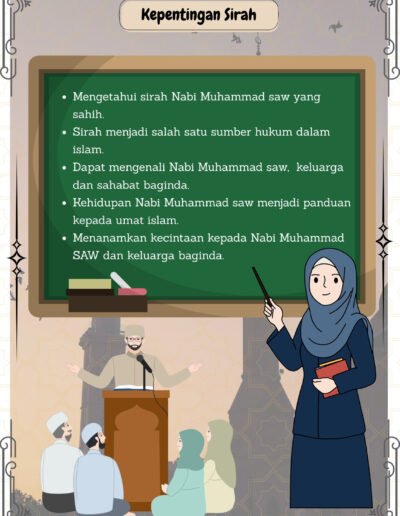 Kepentingan Sirah
• Mengetahui sirah Nabi Muhammad saw yang
sahih.
• Sirah menjadi salah satu sumber hukum dalam
islam.
• Dapat mengenali Nabi Muhammad saw, keluarga
dan sahabat baginda.
• Kehidupan Nabi Muhammad saw menjadi panduan
kepada umat islam.
• Menanamkan kecintaan kepada Nabi Muhammad
SAW dan keluarga baginda.